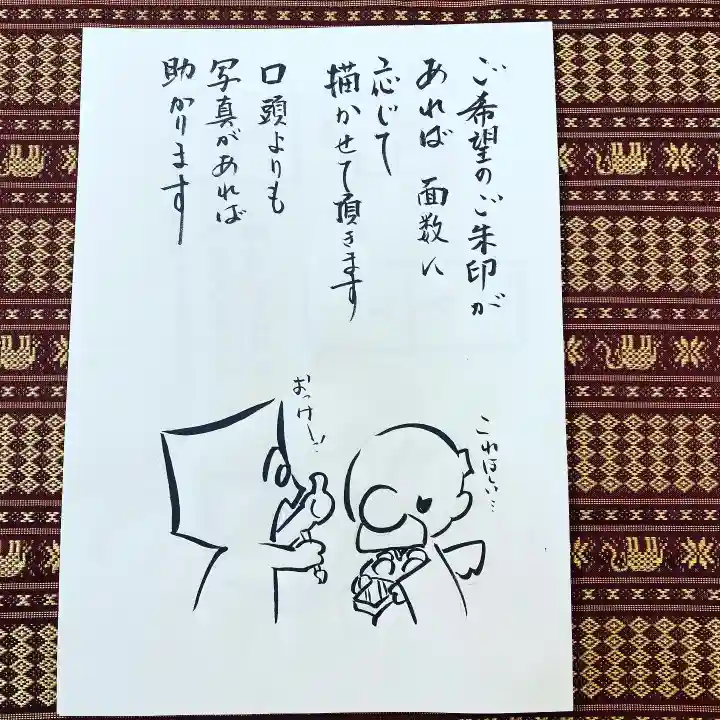 ご希望のご朱印が
あれば 面数に
応じて
描かせて頂きます
口頭よりも
写真があれば
助かります
これほしい…
おっけー!!